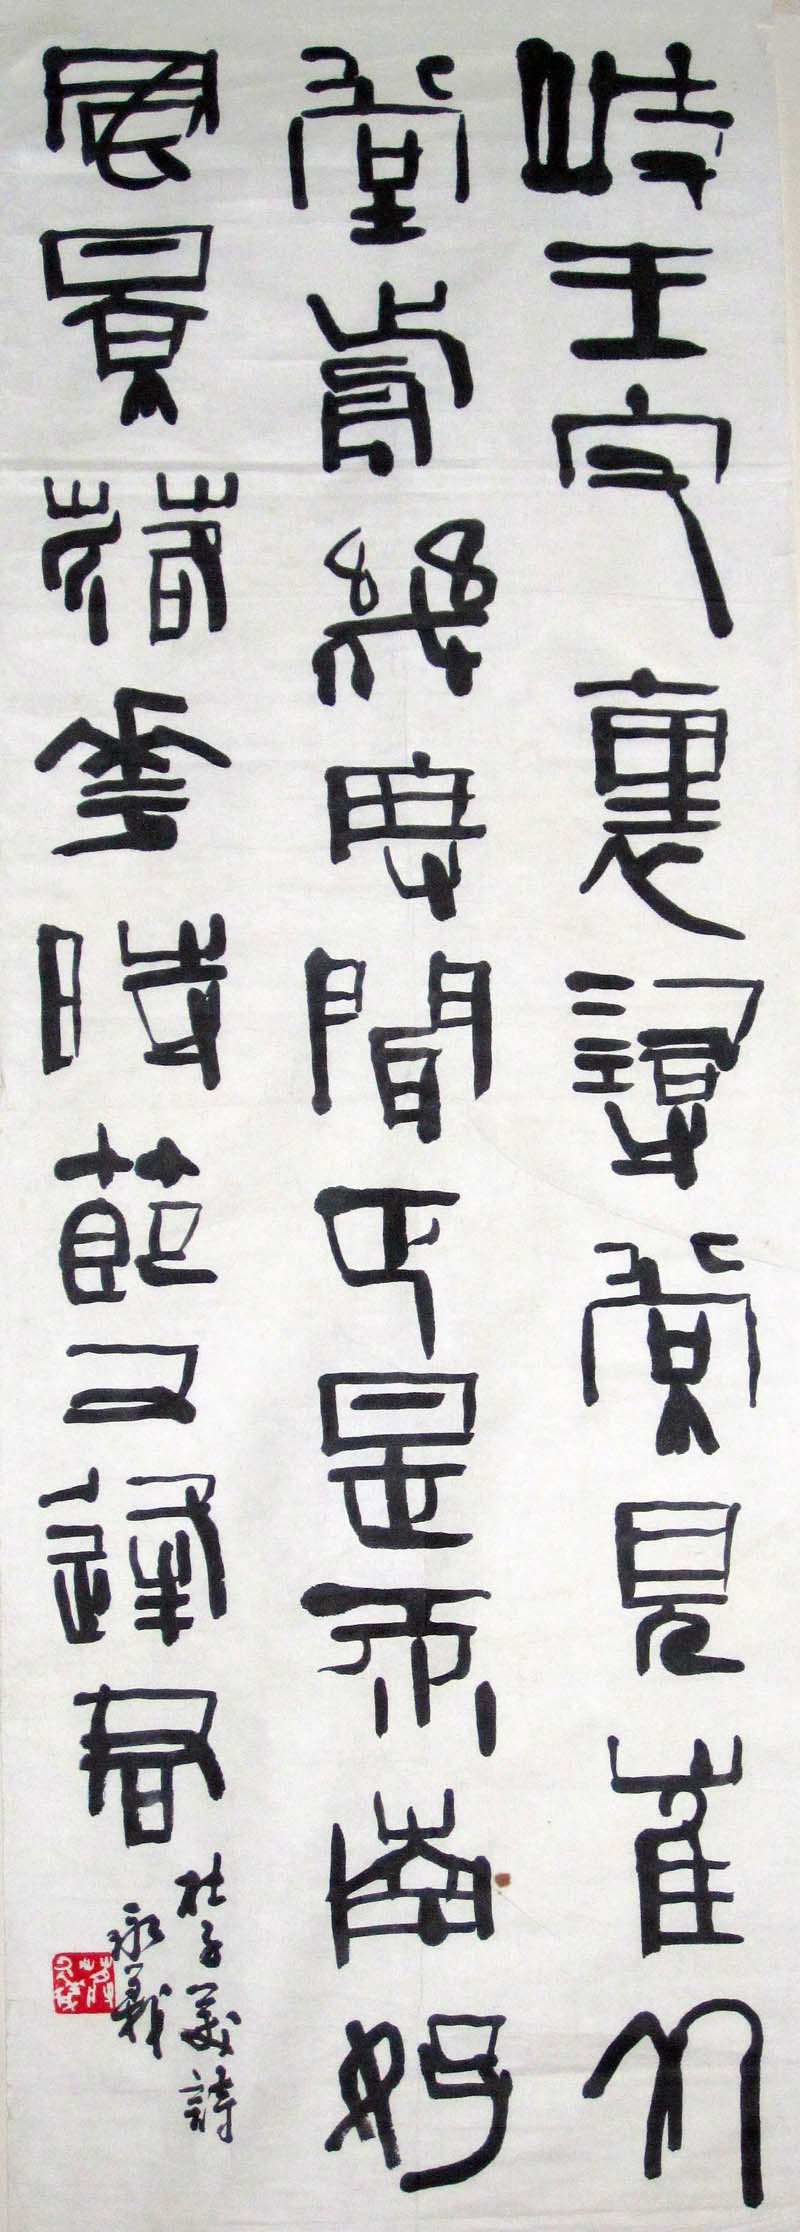 岐王宅裏尋常見崔九
堂前幾度聞正是江南好
風景落花時節又逢君
杜子美詩
永義